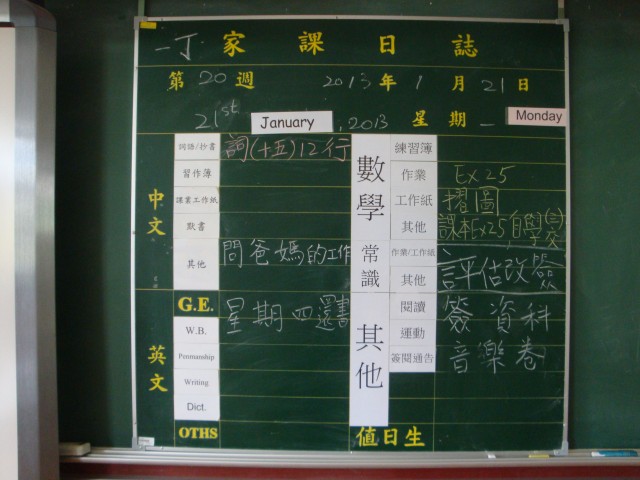 一丁 家課日誌
第20週 2013年1月21日
21st January, 2013 星期一 Monday
中文
詞語/抄書 詞(十五)12行
習作簿
課業工作紙
默書
其他 問爸媽的工作
數學
練習簿
作業 Ex 25
工作紙 摺圖
其他 課本Ex25, 自學(三) 學交
常識
作業/工作紙
其他 評估改簽
英文
G.E. 星期四還書
W.B.
Penmanship
Writing
Dict.
OTHS
其他
閱讀 簽資料
運動
簽閱通告 音樂卷
值日生